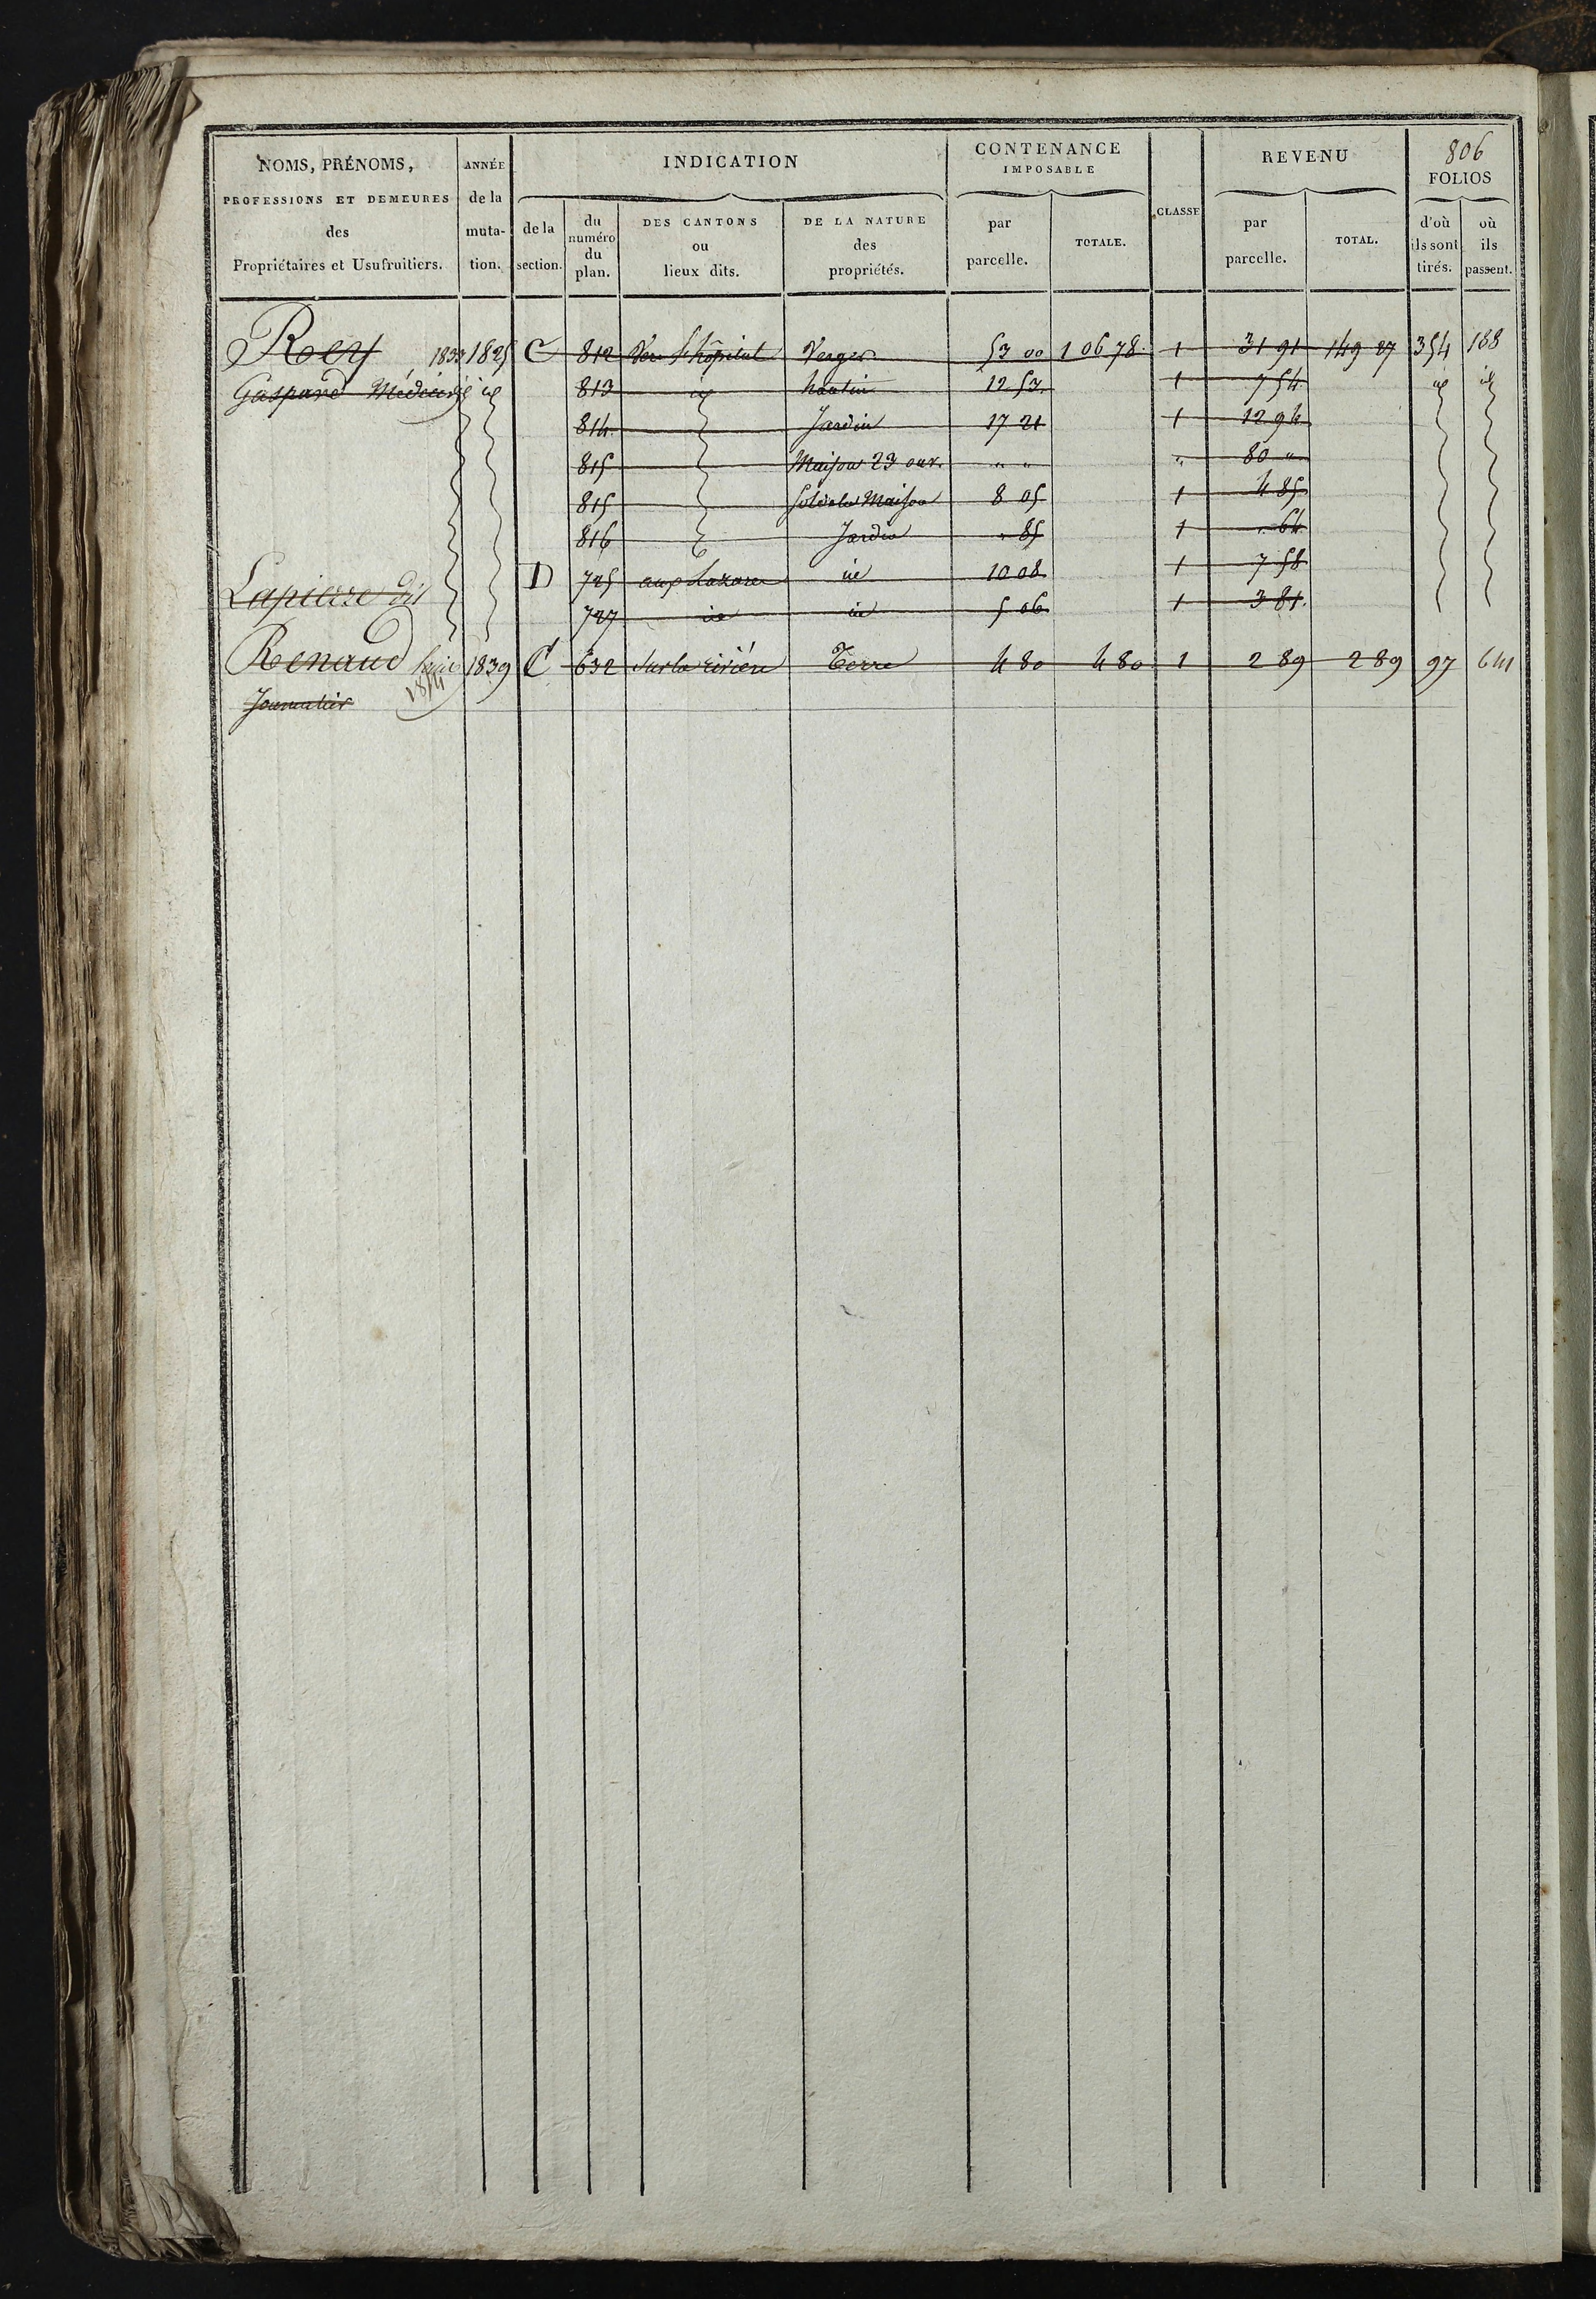 806
NOMS, PRÉNOMS, PROFESSIONS ET DEMEURES des Propriétaires et Usufruitiers.
ANNÉE de la muta-tion.
INDICATION
de la section.
du numéro du plan.
DES CANTONS ou lieux dits.
DE LA NATURE des propriétés.
CONTENANCE IMPOSABLE
par parcelle.
TOTALE.
CLASSE
REVENU
par parcelle.
TOTAL.
FOLIOS
d'où ils sont tirés.
où ils passent.
Rey 1833 1825 C 812 l'hôpital Verger 53 00 1 06 78 1 31 91 149 27 354 188
Gaspard Médecin id id 813 id hautin 12 53 1 7 54 id id
814 Jardin 17 21 1 12 94
815 Maison 23 ouv. " " " 80 "
815 Sol de la Maison 8 05 1 4 85
816 Jardin " 85 1 " 64
D 725 aux id 10 08 1 7 58
Lapierre dit
727 id id 5 06 1 3 81
Renaud 1839 C 632 Sur la rivière Terre 4 80 4 80 1 2 89 2 89 97 641
Journalier